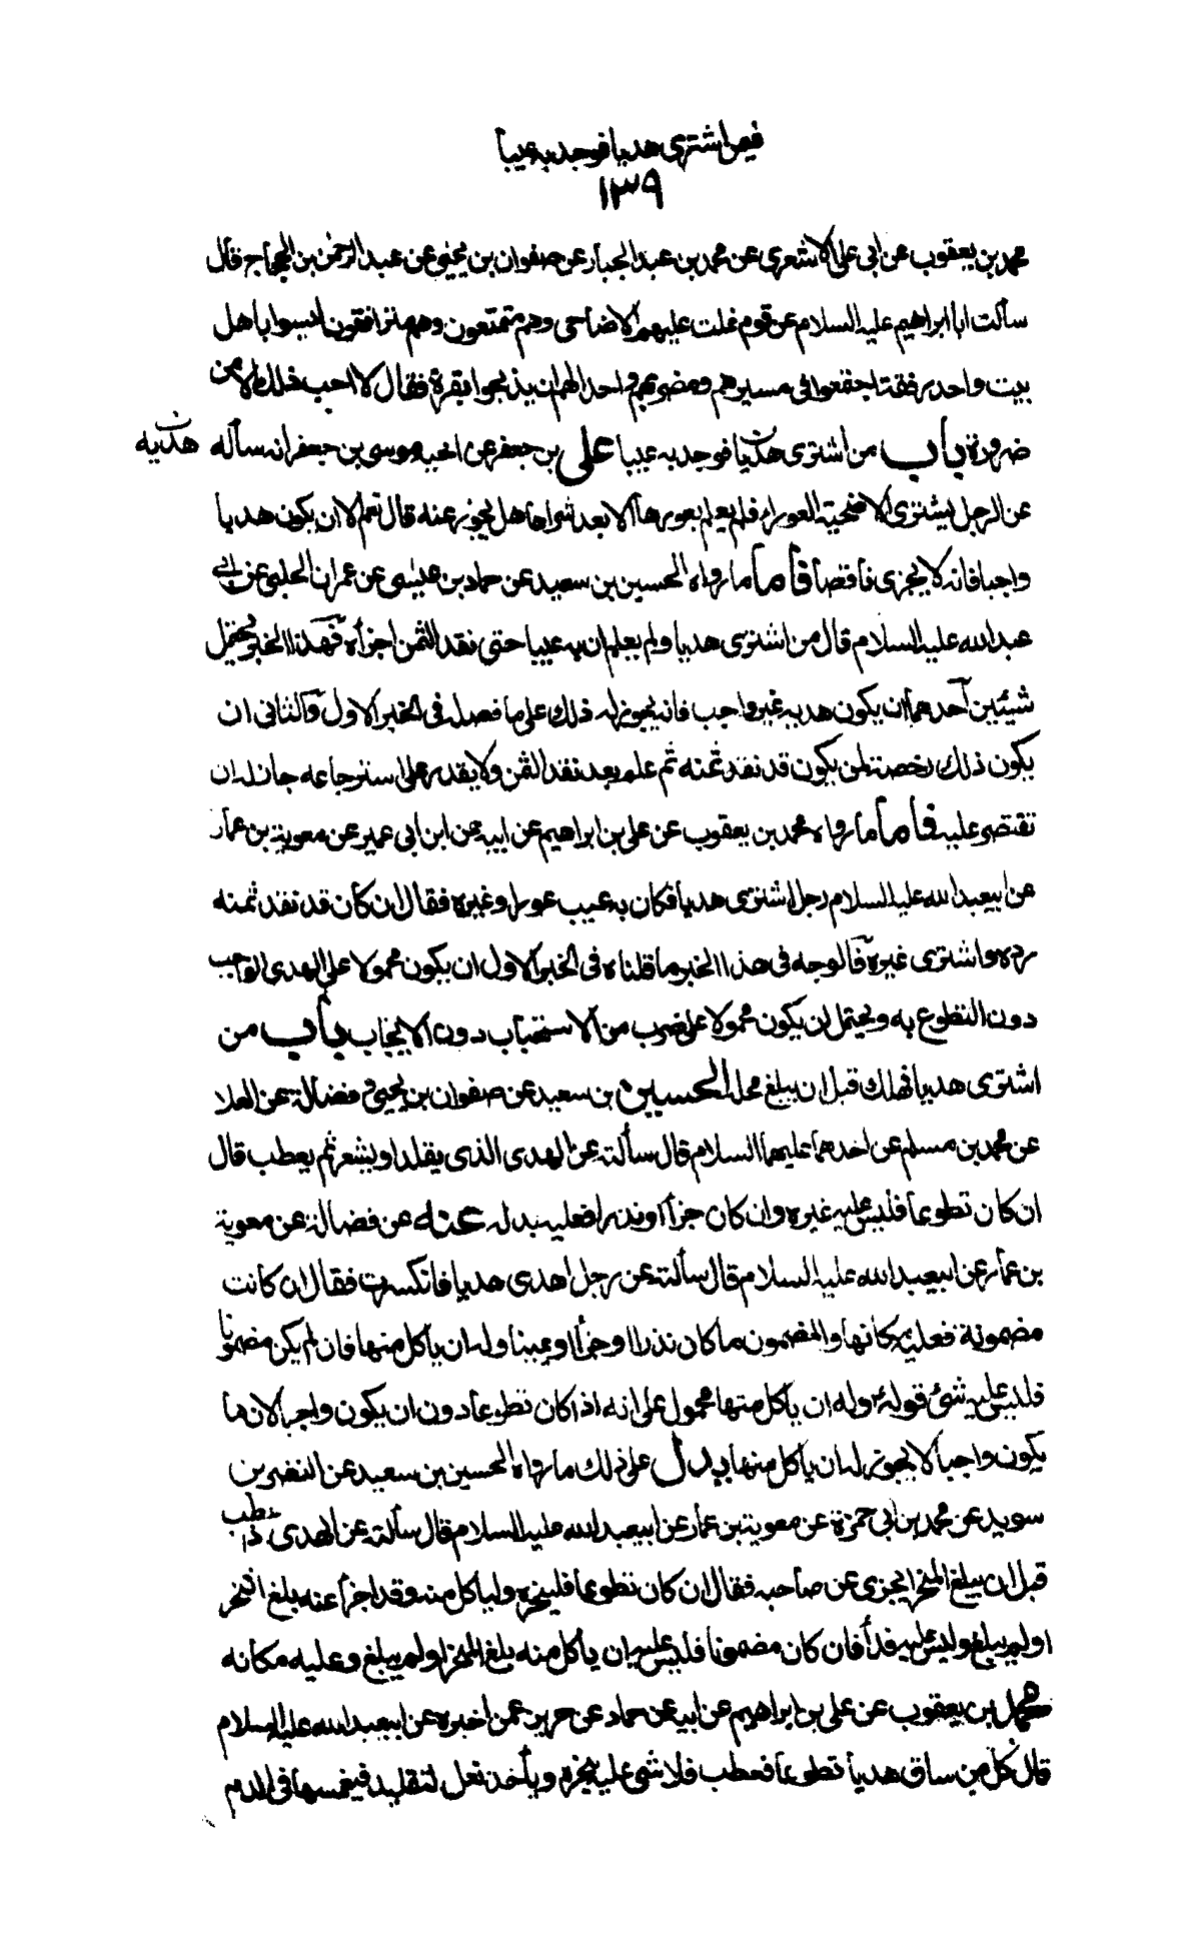 فيمن اشترى هديا فوجد به عيبا
١٣٩
محمد بن يعقوب عن ابى على الاشعرى عن محمد بن عبد الجبار عن صفوان بن يحيى عن عبد الرحمن بن الحجاج قال
سألت ابا ابراهيم عليه السلام عن قوم غلت عليهم الاضاحى وهم متمتعون وهم مترافقون ليسوا باهل
بيت واحد رفقة اجتمعوا فى مسيرهم ومضربهم واحد الهم ان يذبحوا بقرة فقال لا احب ذلك الا من
ضرورة باب من اشترى هديا فوجد به عيبا على بن جعفر عن اخيه موسى بن جعفر انه سأله
هديه
عن الرجل يشترى الاضحية العوراء فلم يعلم بعورها الا بعد شرائها هل يجوز عنه قال نعم الا ان يكون هديا
واجبا فانه لا يجزى ناقصا فأما ما رواه الحسين بن سعيد عن حماد بن عيسى عن عمران الحلبى عن ابى
عبد الله عليه السلام قال من اشترى هديا ولم يعلم ان به عيبا حتى نقد الثمن اجزأه فهذا الخبر يحتمل
شيئين احدهما ان يكون هديه غير واجب فانه يجوز له ذلك على ما فصله فى الخبر الاول والثانى ان
يكون ذلك رخصة لمن يكون قد نقد ثمنه ثم علم بعد نقد الثمن ولا يقدر على استرجاعه جاز له ان
تقتصر عليه فأما ما رواه محمد بن يعقوب عن على بن ابراهيم عن ابيه عن ابن ابى عمير عن معوية بن عمار
عن ابيعبد الله عليه السلام رجل اشترى هديا فكان به عيب عور او غيره فقال ان كان قد نقد ثمنه
رده واشترى غيره فالوجه فى هذا الخبر ما قلناه فى الخبر الاول ان يكون محمولا على الهدى الواجب
دون التطوع به ويحتمل ان يكون محمولا على ضرب من الاستحباب دون الايجاب باب من
اشترى هديا فهلك قبل ان يبلغ محله الحسين بن سعيد عن صفوان بن يحيى وفضالة عن العلا
عن محمد بن مسلم عن احدهما عليهما السلام قال سألته عن الهدى الذى يقلد او يشعر ثم يعطب قال
ان كان تطوعا فليس عليه غيره وان كان جزأ او نذرا فعليه بدله عنه عن فضالة عن معوية
بن عمار عن ابيعبد الله عليه السلام قال سألته عن رجل اهدى هديا فانكسرت فقال ان كانت
مضمونة فعليه مكانها والمضمون ما كان نذرا او جزأ او يمينا وله ان ياكل منها فان لم يكن مضمونا
فليس عليه شئ قوله ع وله ان ياكل منها محمول على انه اذا كان تطوعا دون ان يكون واجبا لان ما
يكون واجبا لا يجوز له ان ياكل منها يدل على ذلك ما رواه الحسين بن سعيد عن النضر بن
سويد عن محمد بن ابى حمزة عن معوية بن عمار عن ابيعبد الله عليه السلام قال سألته عن الهدى اذا عطب
قبل ان يبلغ المنحر ايجزى عن صاحبه فقال ان كان تطوعا فلينحره ولياكل منه وقد اجزأ عنه بلغ المنحر
او لم يبلغ وليس عليه فدأ فان كان مضمونا فليس عليه ان يأكل منه بلغ المنحر او لم يبلغ وعليه مكانه
محمد بن يعقوب عن على بن ابراهيم عن ابيه عن حماد عن حريز عمن اخبره عن ابيعبد الله عليه السلام
قال كل من ساق هديا تطوعا فعطب فلا شئ عليه ينحره ويأخذ نعل التقليد فيغمسها فى الدم